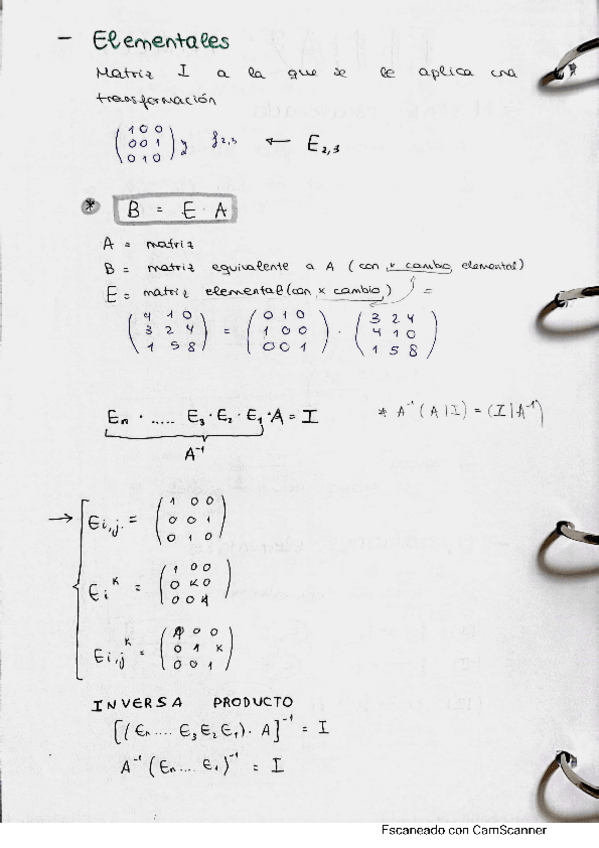 - Elementales
Matriz I a la que se le aplica una
transformación
(1 0 0
0 0 1
0 1 0) f2,3 ← E2,3
* B = E · A
A = matriz
B = matriz equivalente a A (con x cambio elemental)
E = matriz elemental (con x cambio) =
(4 1 0
3 2 4
1 5 8) = (0 1 0
1 0 0
0 0 1) · (3 2 4
4 1 0
1 5 8)
En · ..... E3 · E2 · E1 · A = I
* A⁻¹ (A|I) = (I|A⁻¹)
A⁻¹
→ Ei,j = (1 0 0
0 0 1
0 1 0)
Ei^K = (1 0 0
0 K 0
0 0 1)
Ei,j^K = (1 0 0
0 1 K
0 0 1)
INVERSA PRODUCTO
[(En .... E3 E2 E1) · A]⁻¹ = I
A⁻¹ (En ... E1)⁻¹ = I
Escaneado con CamScanner